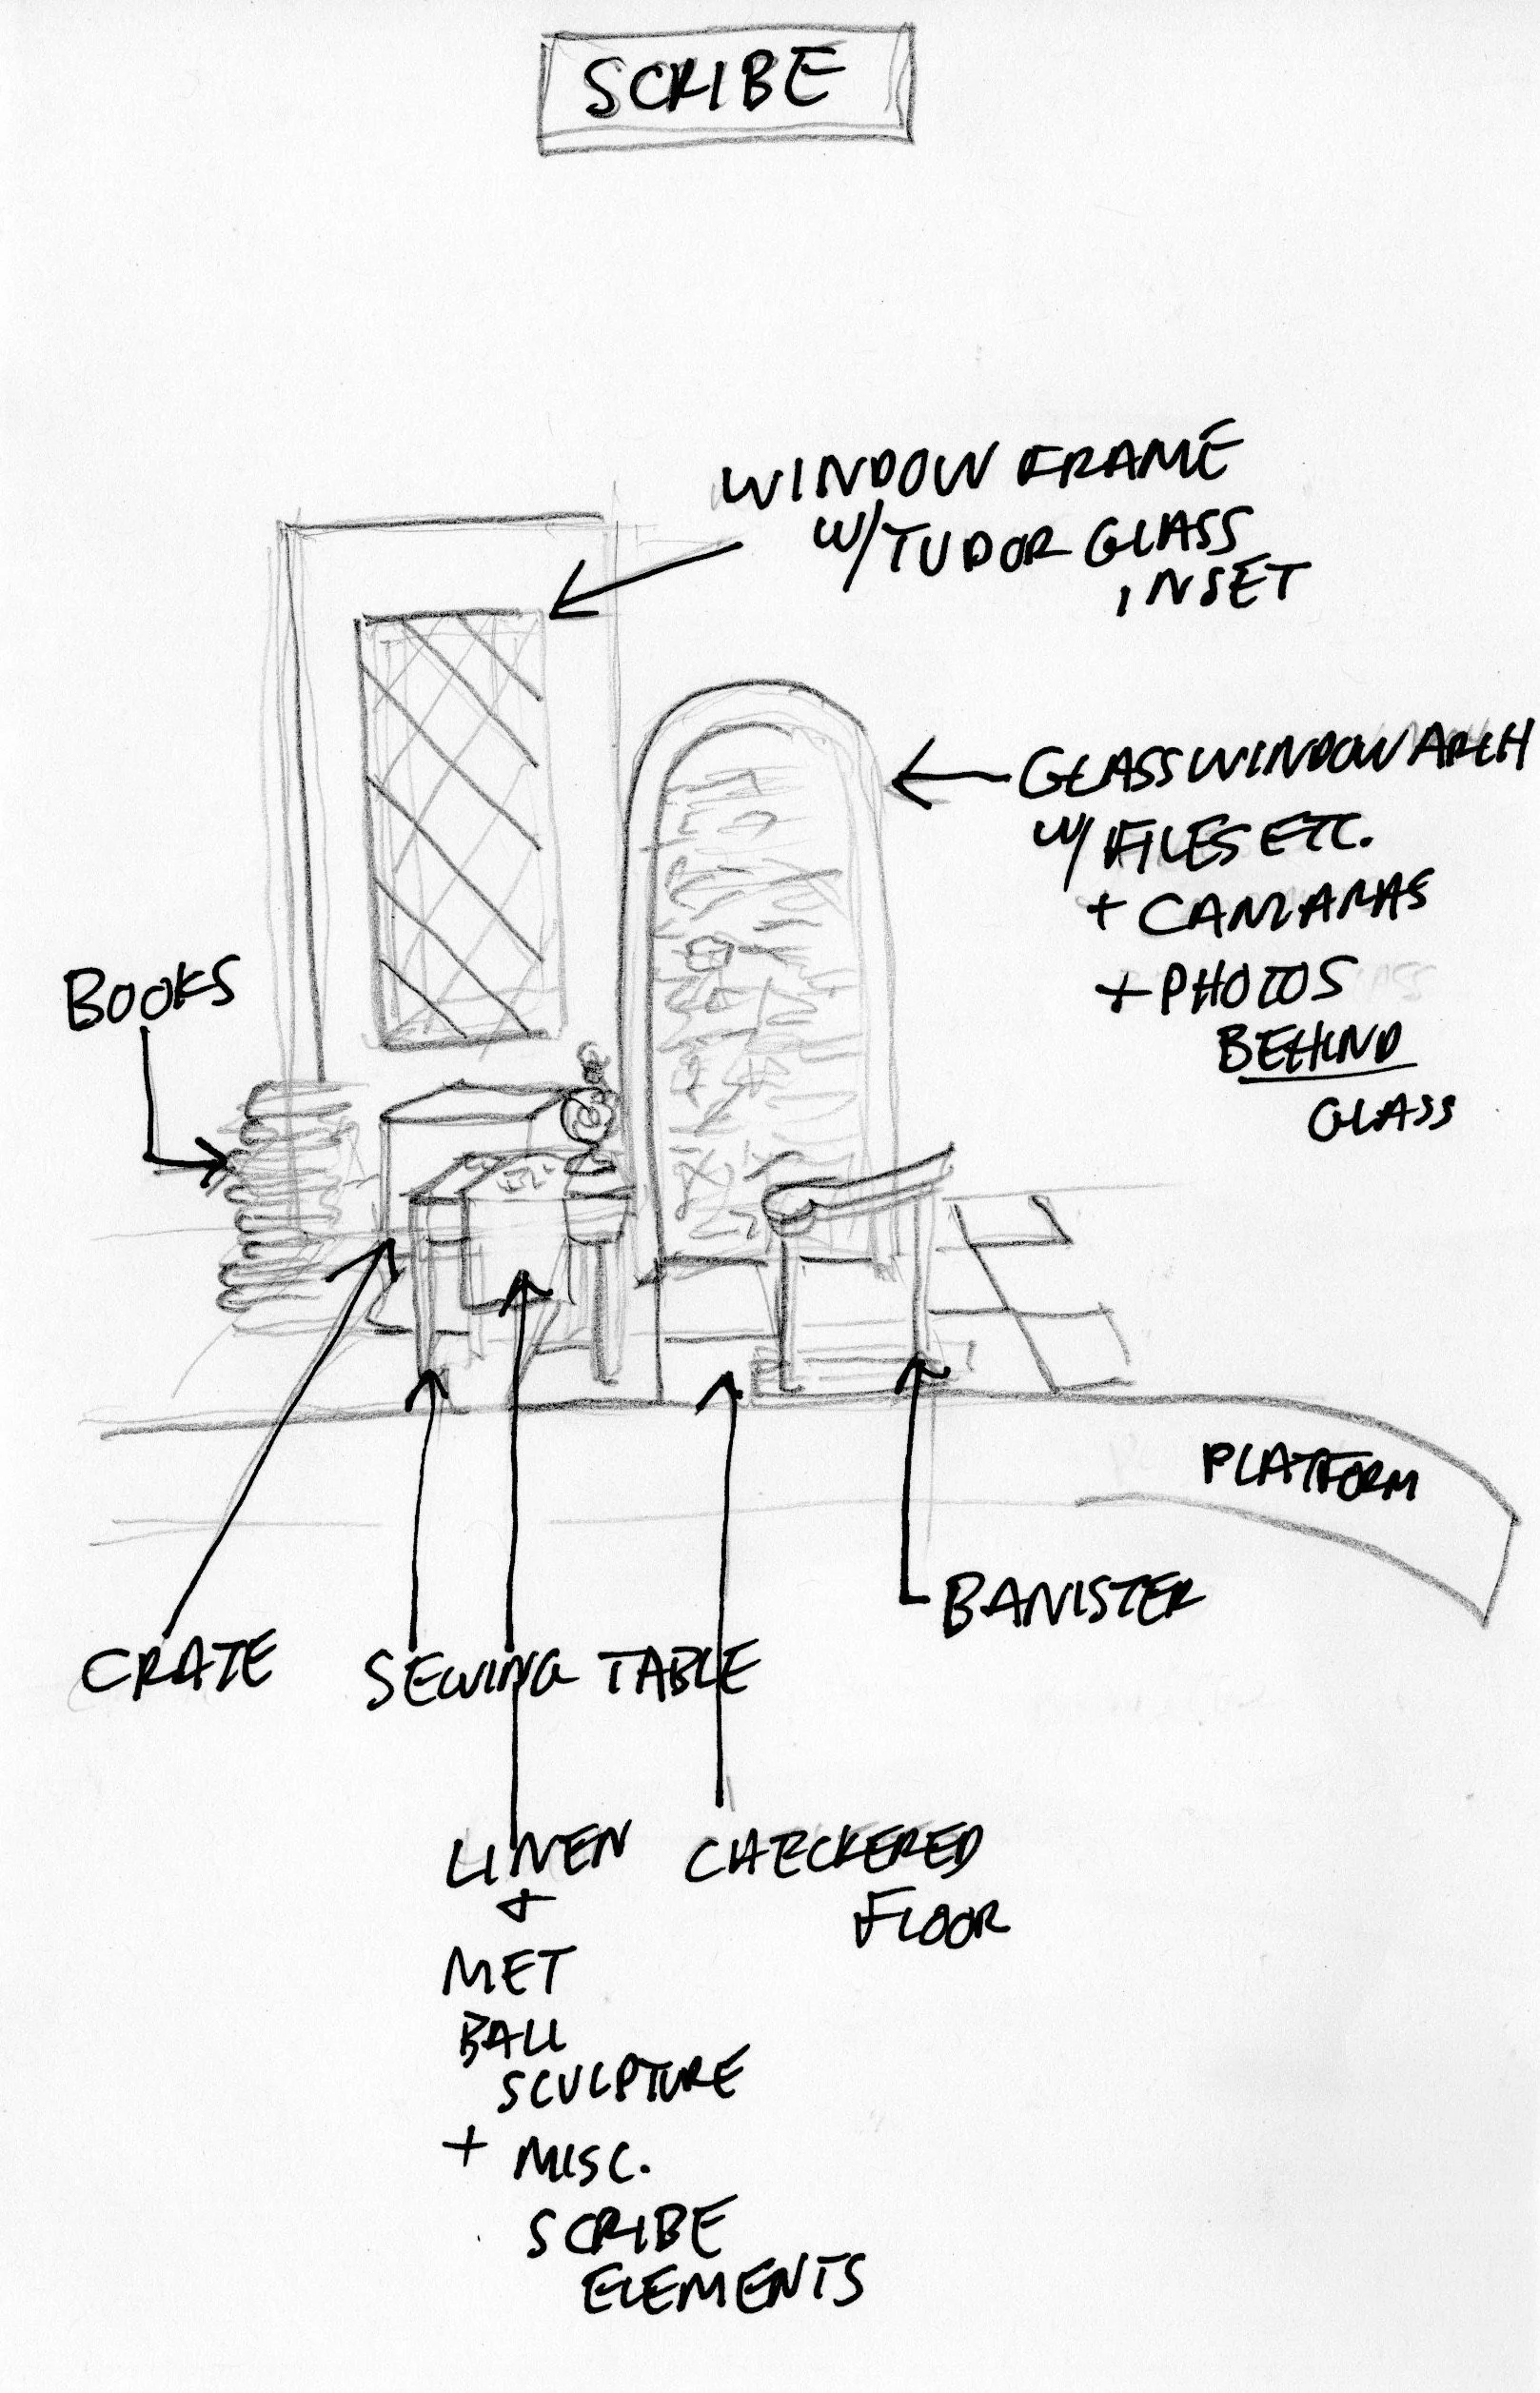 SCRIBE
WINDOW FRAME
W/TUDOR GLASS
INSET
GLASS WINDOW ARCH
W/ FILES ETC.
+
+ PHOTOS
BEHIND
GLASS
BOOKS
PLATFORM
BANISTER
CRATE
SEWING TABLE
LINEN
+
MET
BALL
SCULPTURE
+ MISC.
SCRIBE
ELEMENTS
CHECKERED
FLOOR